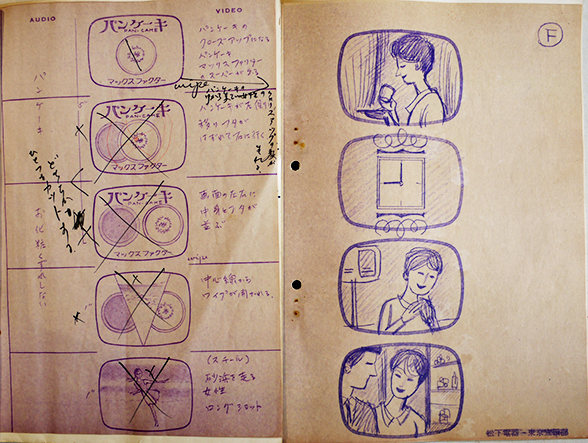 AUDIO
VIDEO
パンケーキ
PAN-CAKE
マックスファクター
パンケーキの
クローズアップになる
パンケーキ
マックスファクター
のスーパーが入る
wipe
パンケーキ
パンケーキ
PAN-CAKE
マックスファクター
パンケーキが左側に
移りフタが
はずれて右に行く
どちらか
ひとつをカットする。
パンケーキ
マックスファクター
画面の左右に
中身とフタが
並ぶ
wipe
お化粧くずれしない
中心線から
ワイプが開かれる。
(スチール)
砂浜を走る
女性
ロングショット
F
松下電器－東京宣伝部